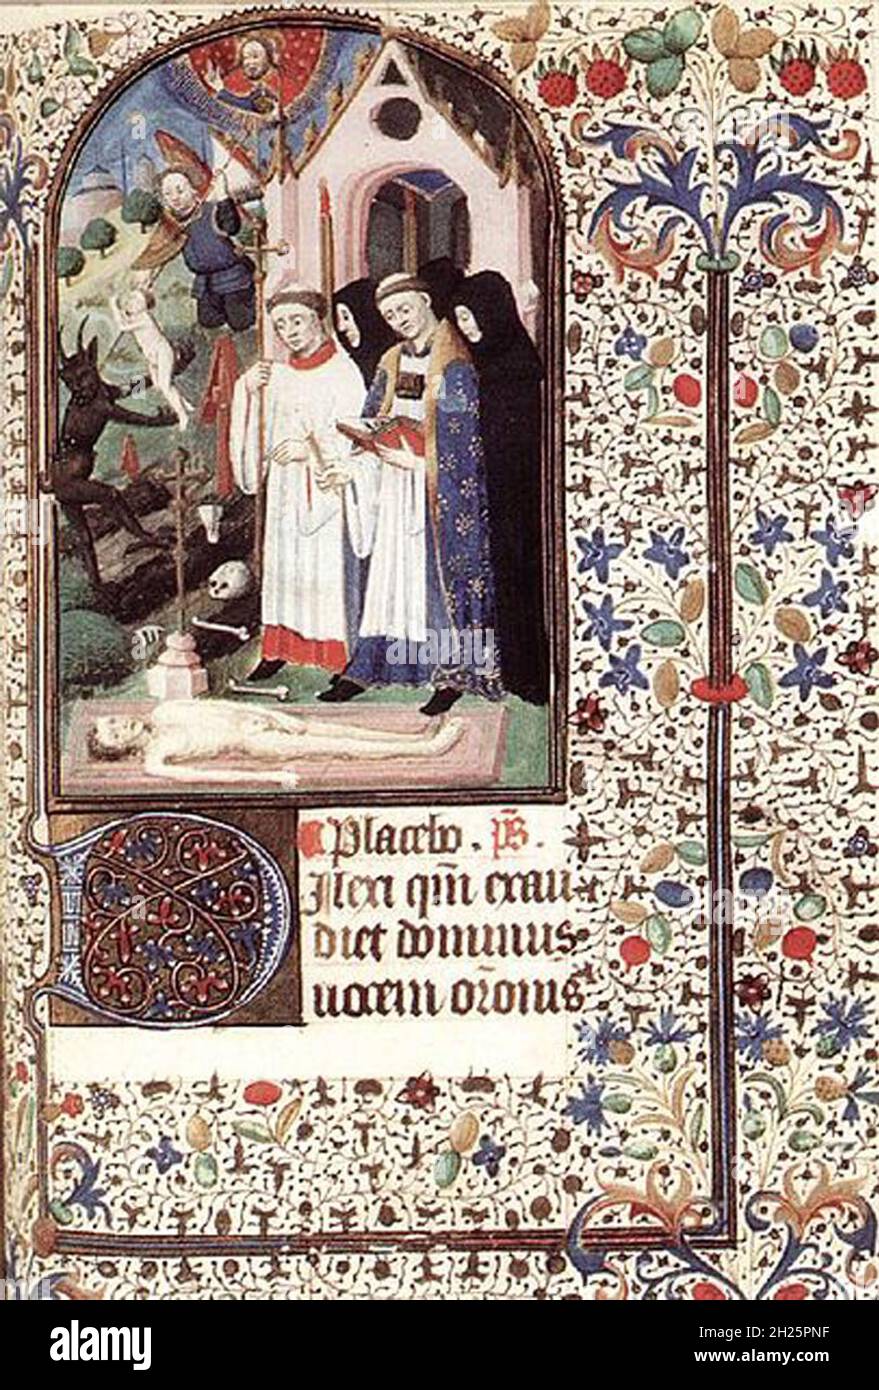 Placebo. p̄s̄.
Dilexi qm̄ exau
diet dominus
vocem or̄onis
alamy
Image ID: 2H25PNF
www.alamy.com